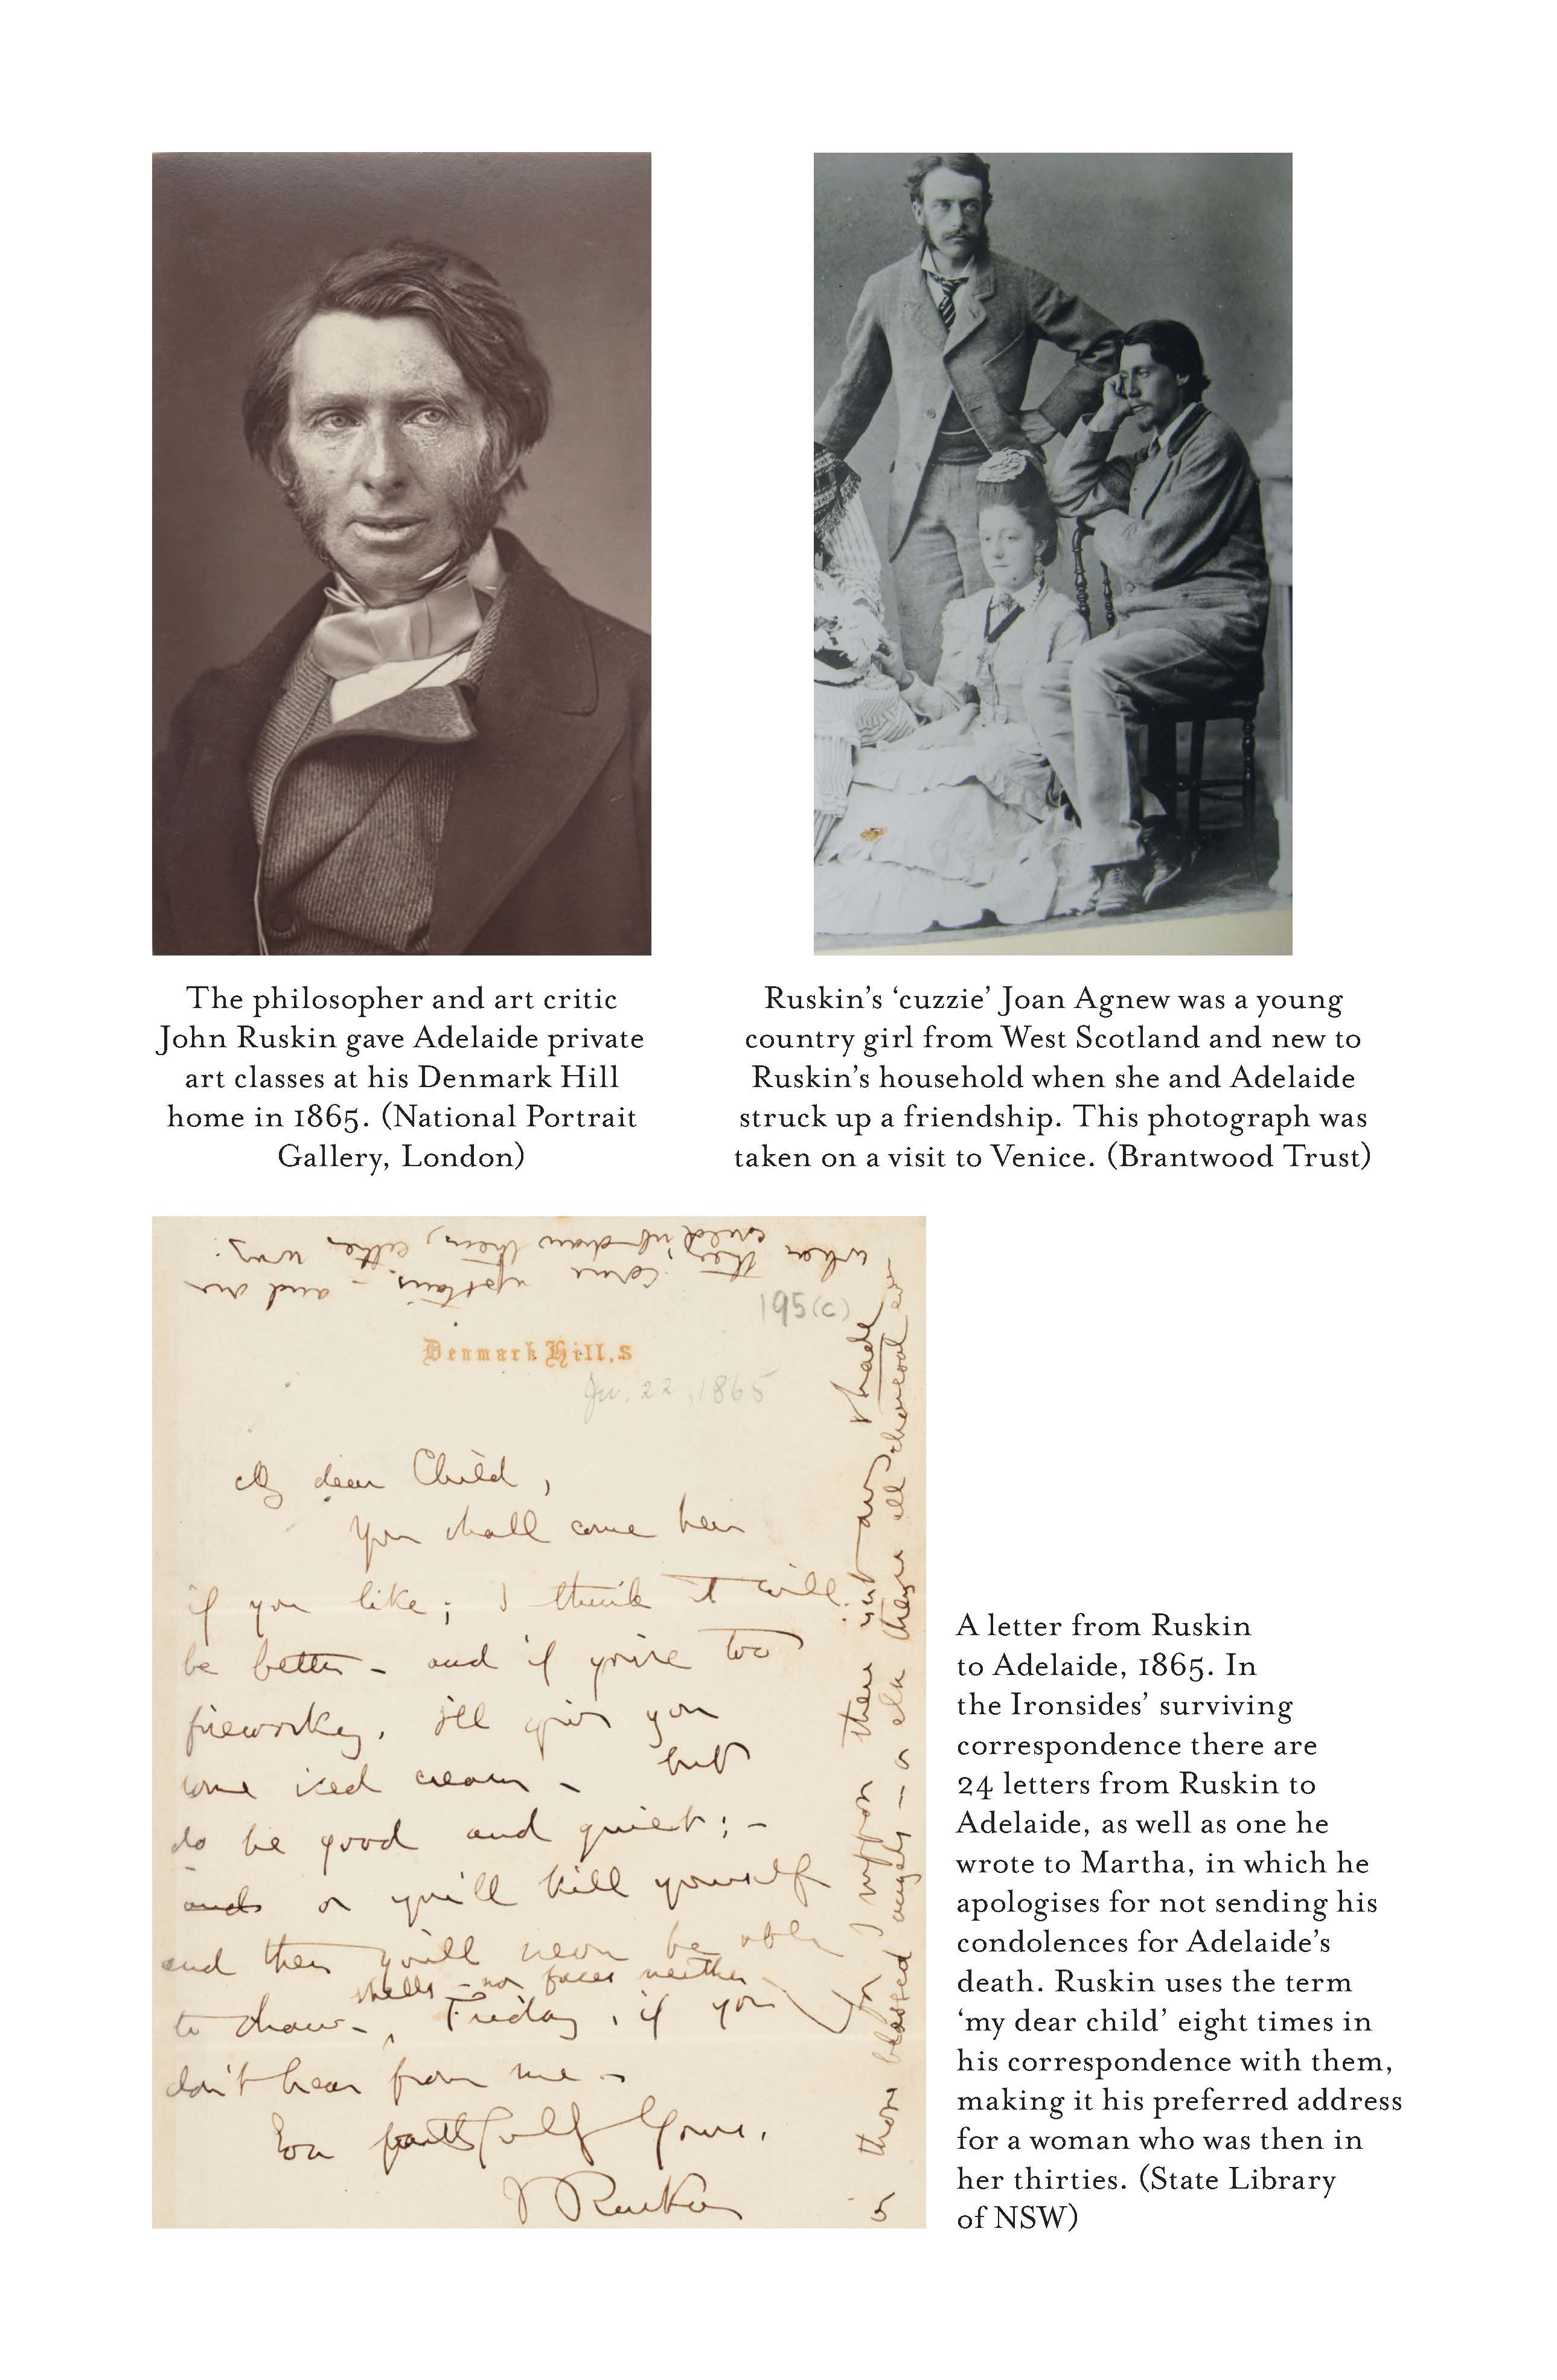 The philosopher and art critic
John Ruskin gave Adelaide private
art classes at his Denmark Hill
home in 1865. (National Portrait
Gallery, London)
Ruskin’s ‘cuzzie’ Joan Agnew was a young
country girl from West Scotland and new to
Ruskin’s household when she and Adelaide
struck up a friendship. This photograph was
taken on a visit to Venice. (Brantwood Trust)
195(c)
Denmark Hill, S
22, 1865
My dear Child,
You shall come here
if you like; I think it will
be better - and if you're too
fireworky, I'll give you
some iced cream - but
do be good and quiet; -
or you'll kill yourself
and then you'll never be able
shells - nor faces neither
to draw -, Friday, if you
don't hear from me -
Ever faithfully Yours,
J Ruskin
for I suppose there isn't any shade
in those blessed angels - or else they're all charcoal
when they come upstairs - and are
couldn't draw them, either way.
A letter from Ruskin
to Adelaide, 1865. In
the Ironsides’ surviving
correspondence there are
24 letters from Ruskin to
Adelaide, as well as one he
wrote to Martha, in which he
apologises for not sending his
condolences for Adelaide’s
death. Ruskin uses the term
‘my dear child’ eight times in
his correspondence with them,
making it his preferred address
for a woman who was then in
her thirties. (State Library
of NSW)